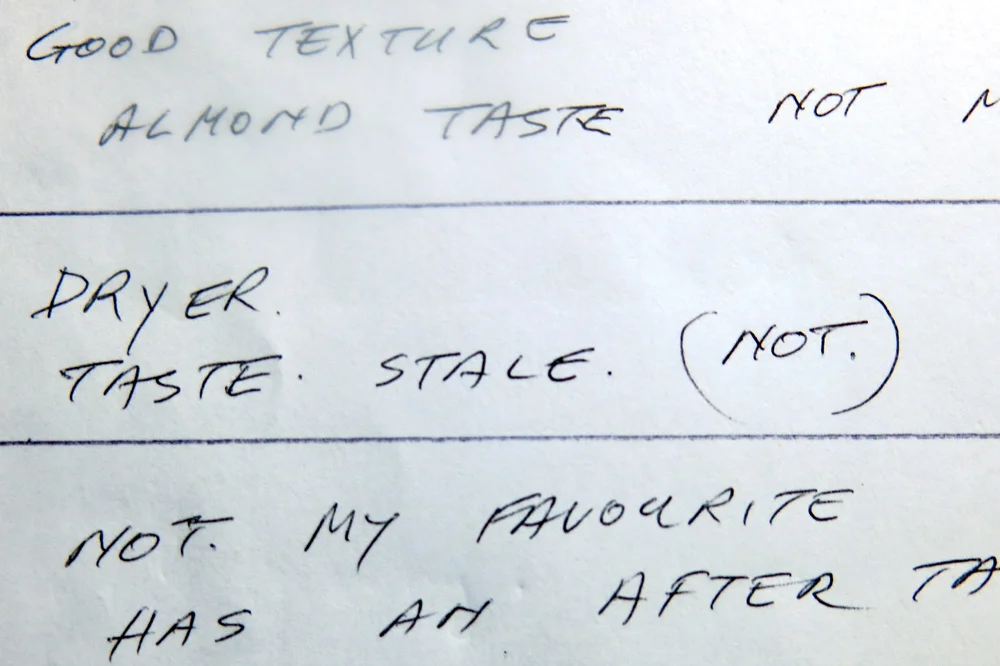 GOOD TEXTURE
ALMOND TASTE NOT
DRYER.
TASTE. STALE. (NOT.)
NOT. MY FAVOURITE
HAS AN AFTER TA